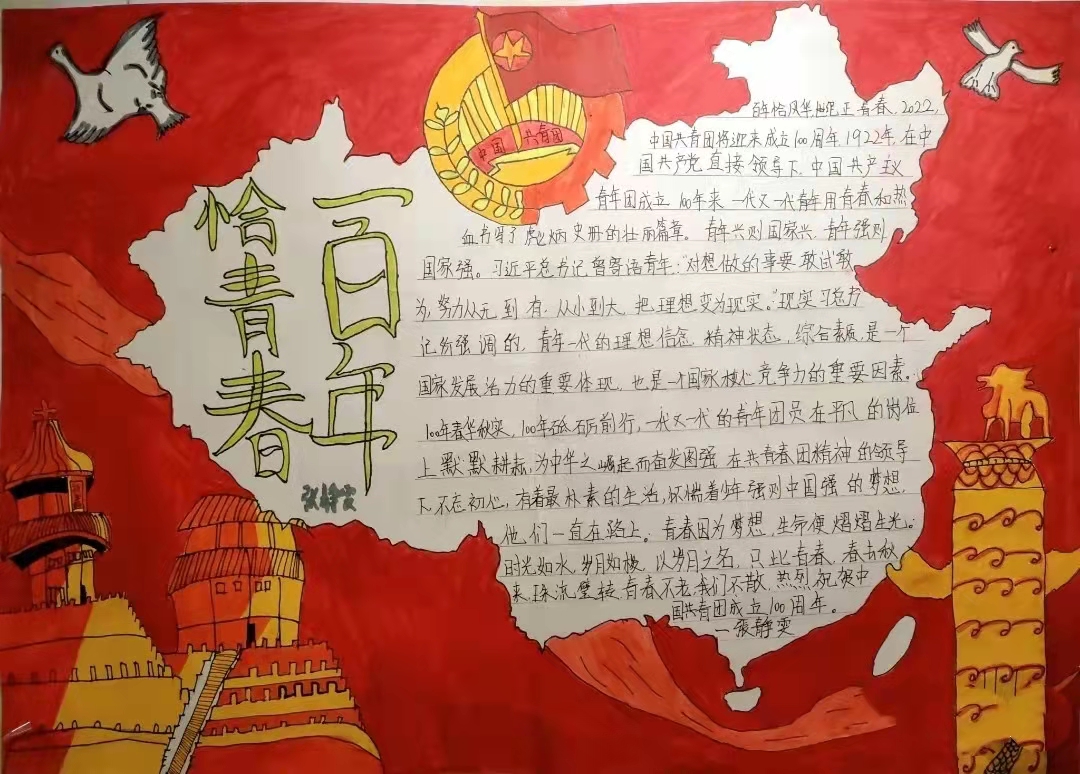 百年
恰青春
张静雯
中国 共青团
百年恰风华,世纪正青春,2022,
中国共青团将迎来成立100周年,1922年,在中
国共产党直接领导下,中国共产主义
青年团成立,100年来,一代又一代青年用青春和热
血书写了彪炳史册的壮丽篇章。青年兴则国家兴,青年强则
国家强。习近平总书记曾寄语青年:“对想做的事要敢试敢
为,努力从无到有,从小到大,把理想变为现实。”现实习总书
记所强调的,青年一代的理想信念,精神状态,综合素质,是一个
国家发展活力的重要体现,也是一个国家核心竞争力的重要因素。
100年春华秋实,100年砥砺前行,一代又一代的青年团员在平凡的岗位
上默默耕耘,为中华之崛起而奋发图强,在共青春团精神的领导
下,不忘初心,有着最朴素的生活,怀惴着少年强则中国强的梦想,
他们一直在路上。青春因为梦想,生命便熠熠生光。
时光如水,岁月如梭,以岁月之名,只此青春,春去秋
来,珠流璧转,青春不老,我们不散,热烈祝贺中
国共青团成立100周年。
—张静雯